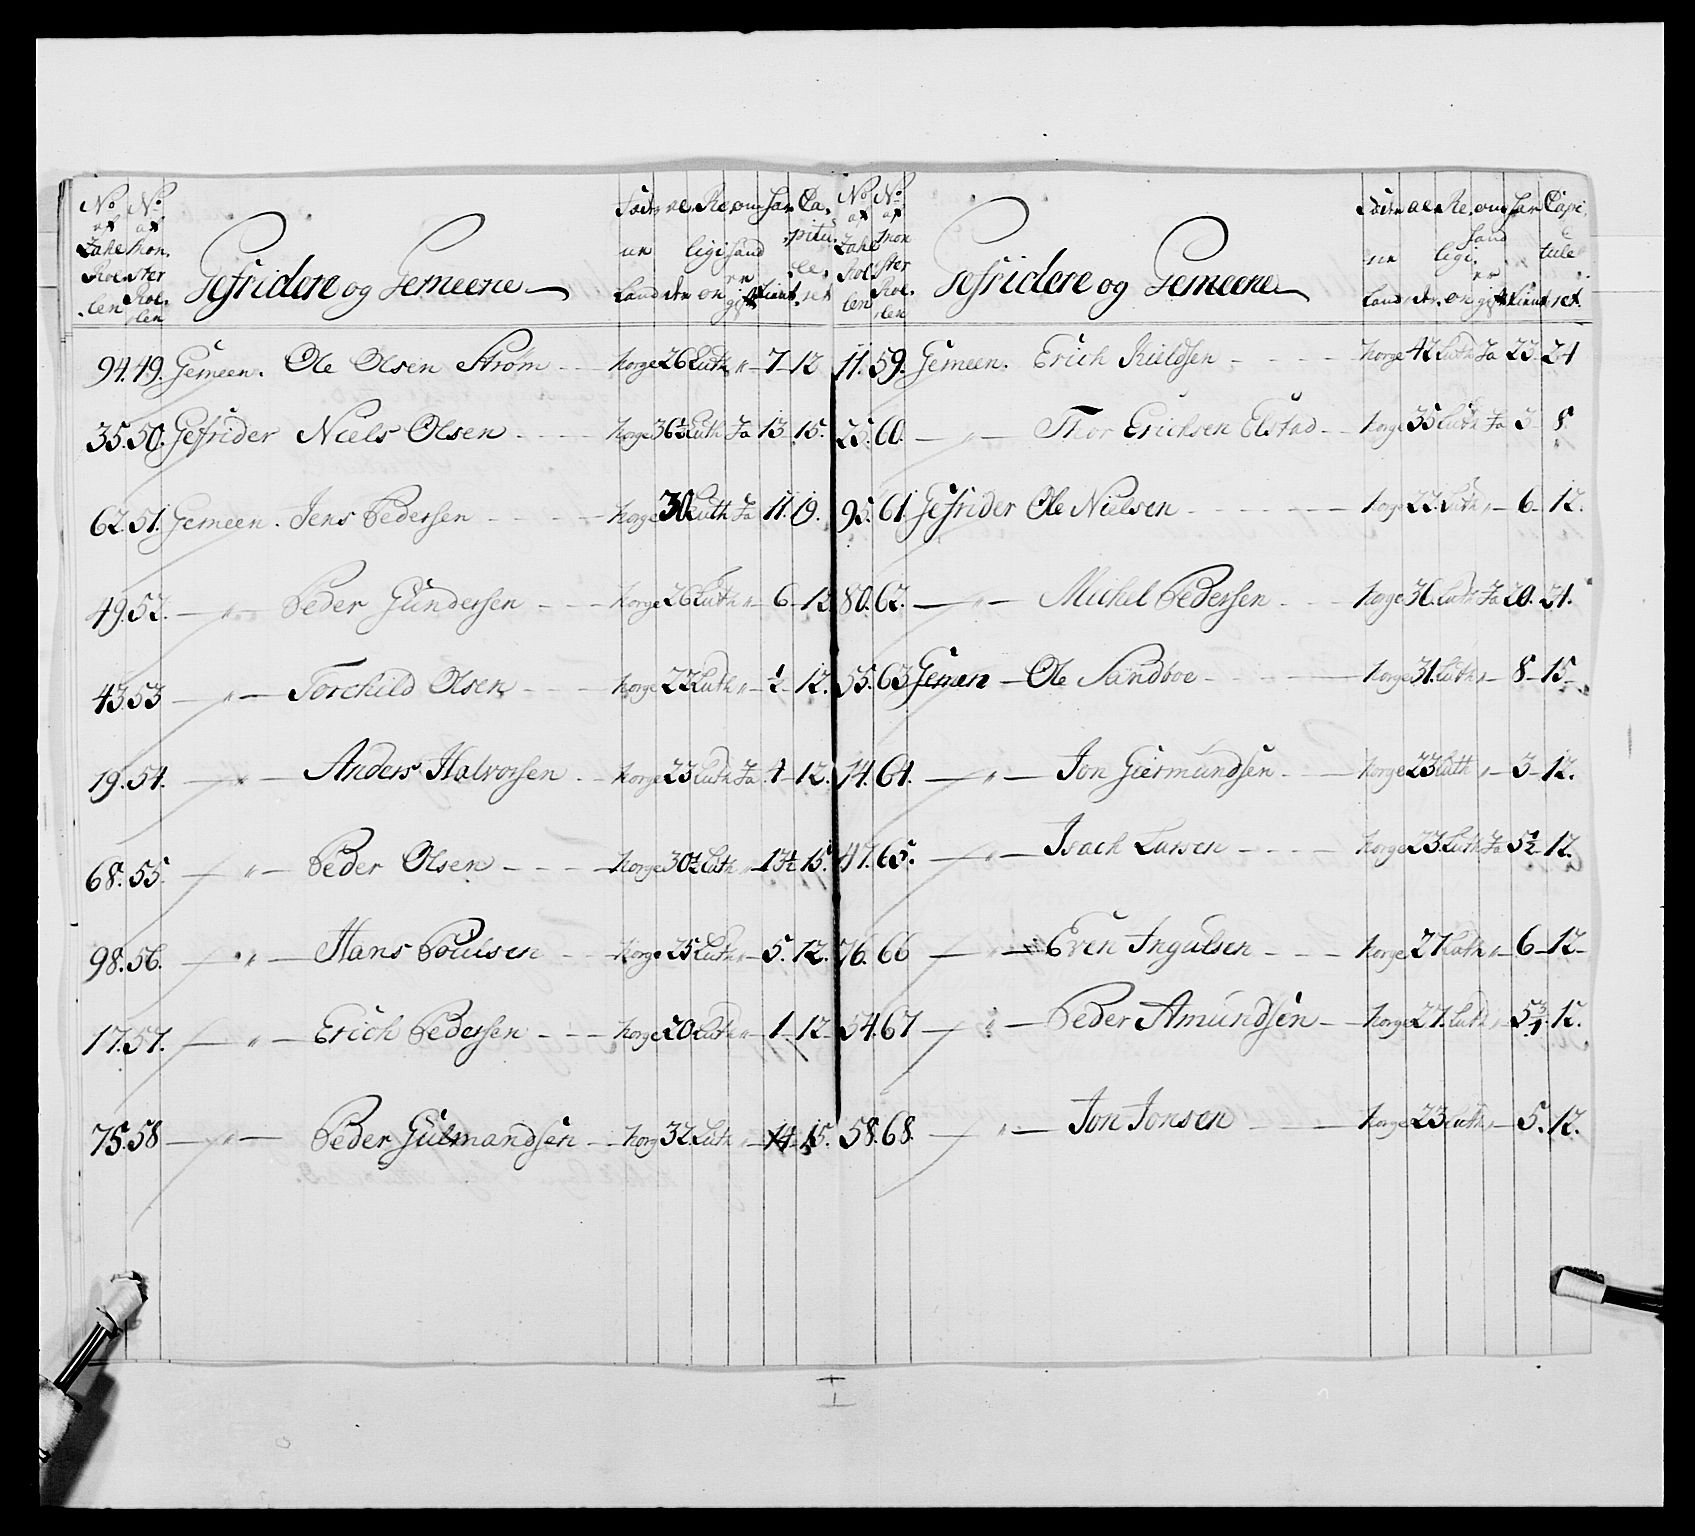 No af Zahl Rol-len No af Mon-ster Rol-len Gefridere og Gemeene Føde Land al der Re ligi on om hand er gift har tient Ca-pitu-le-ret
94. 49. Gemeen. Ole Olsen Strøm Norge 26 Luth " 7 12
35. 50. Gefrider Niels Olsen Norge 36½ Luth Ja 13 15.
62. 51. Gemeen. Jens Pedersen Norge 30 Luth Ja 11. 19.
49. 52. " Peder Gundersen Norge 26 Luth " 6 12
43. 53 " Torchild Olsen Norge 23 Luth " ½ 12.
19. 54. " Anders Halvorsen Norge 23 Luth Ja 4 12.
68. 55. " Peder Olsen Norge 30½ Luth " 13½ 15.
98. 56. " Hans Poulsen Norge 25 Luth " 5. 12.
17. 57. " Erich Pedersen Norge 20 Luth " 1 12
75. 58 " Peder Gulmandsen Norge 32 Luth " 14 15.
No af Zahl Rol-len No af Mon-ster Rol-len Gefridere og Gemeene Føde Land al der Re ligi on om hand er gift har tient Capi-tule-ret
11. 59. Gemeen. Erich Kieldsen Norge 42 Luth Ja 23. 24
25. 60. " Thor Erichsen Elstad Norge 35 Luth Ja 3 8.
95. 61. Gefrider Ole Nielsen Norge 22. Luth " 6 12.
80. 62. " Michel Pedersen Norge 36. Luth Ja 20. 21.
55. 63 Gemen Ole Sandboe Norge 31. Luth " 8 15
14. 64. " Jon Giermundsen Norge 23 Luth " 3 12.
47. 65. " Isach Larsen Norge 23. Luth Ja 5½ 12.
76. 66 " Even Ingulsen Norge 27 Luth " 6 12
54. 67 " Peder Amundsen Norge 27. Luth " 5¾. 12.
58. 68. " Jon Jonsen Norge 23 Luth " 5. 12.